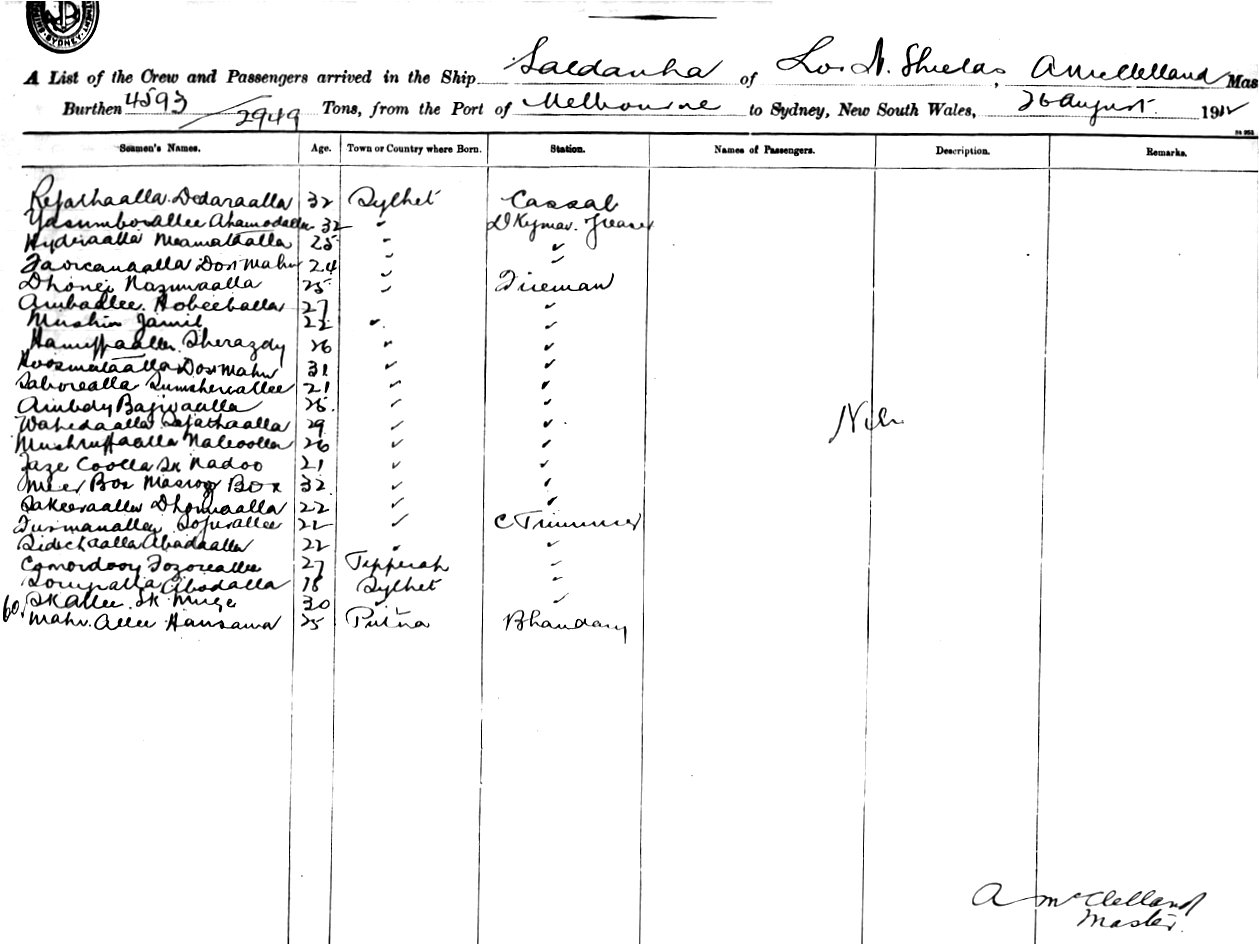 SYDNEY
A List of the Crew and Passengers arrived in the Ship Saldanha of N. Shields, A McClelland Mas
Burthen 4593/2949 Tons, from the Port of Melbourne to Sydney, New South Wales, 26 August 1912
Seamen's Names. Age. Town or Country where Born. Station. Names of Passengers. Description. Remarks.
Refathaalla Dedaraalla 32 Sylhet Cassab
Yasumborallee Ahamodalla 32 " Greaser
Hyderaalla Neamathalla 25 " "
Dosi Mahn 24 " "
Dhonei Nazumaalla 25 " Fireman
Ambadlee Hobeeballa 27 "
Mushin Jamil 22 " "
Sherazdy 26 " "
Dosi Mahn 31 " "
Saborealla Sumsherallee 21 " "
Ambdy Bajivaalla 25 " "
Wahedaalla Safathaalla 29 " " Nil
Mushruffaalla 26 " "
Faze Coolla Sk Nadoo 21 " "
Meer Box Box 32 " "
Sakeeraalla Dhonnaalla 22 " "
Surmanallee 22 " C Trimmer
Abadaalla 22 " "
Comordooy Fozoreallee 27 Tipperah "
Abodalla 18 Sylhet "
60 Sk Allee Sk 30 " "
Mahn. Allee Hansawa 25 Putna Bhandary
A McClelland
Master